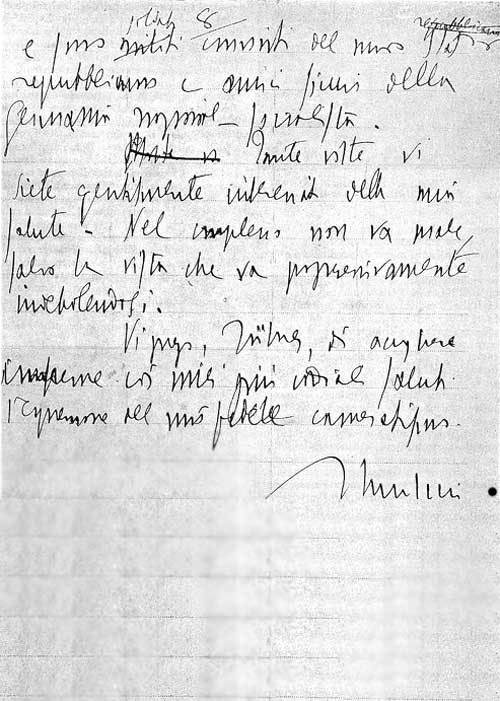 soliti 8
repubblicano
e sono militi convinti del nuovo Stato
repubblicano e amici sicuri della
Germania nazional-socialista.
Tante volte vi
siete gentilmente interessato della mia
salute - Nel complesso non va male,
salvo la vista che va progressivamente
indebolendosi.
Vi prego, Führer, di accogliere
insieme coi miei più cordiali saluti
l'espressione del mio fedele cameratismo.
Mussolini